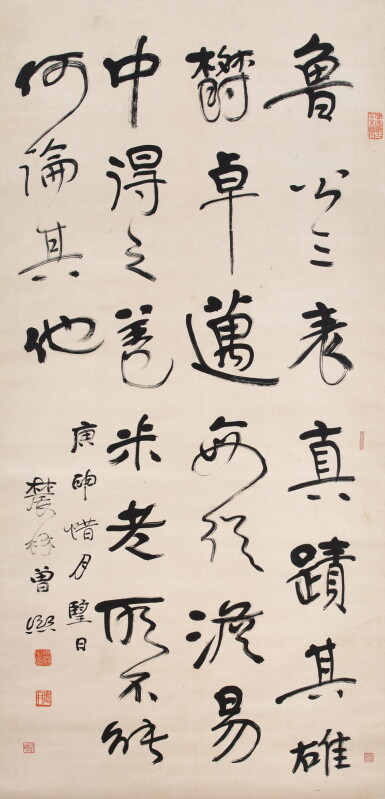 魯公三表真蹟其雄
鬱卓邁每從澹易
中得之蓋米老所不能
何論其他
庚申月朢日
農髯曾熙